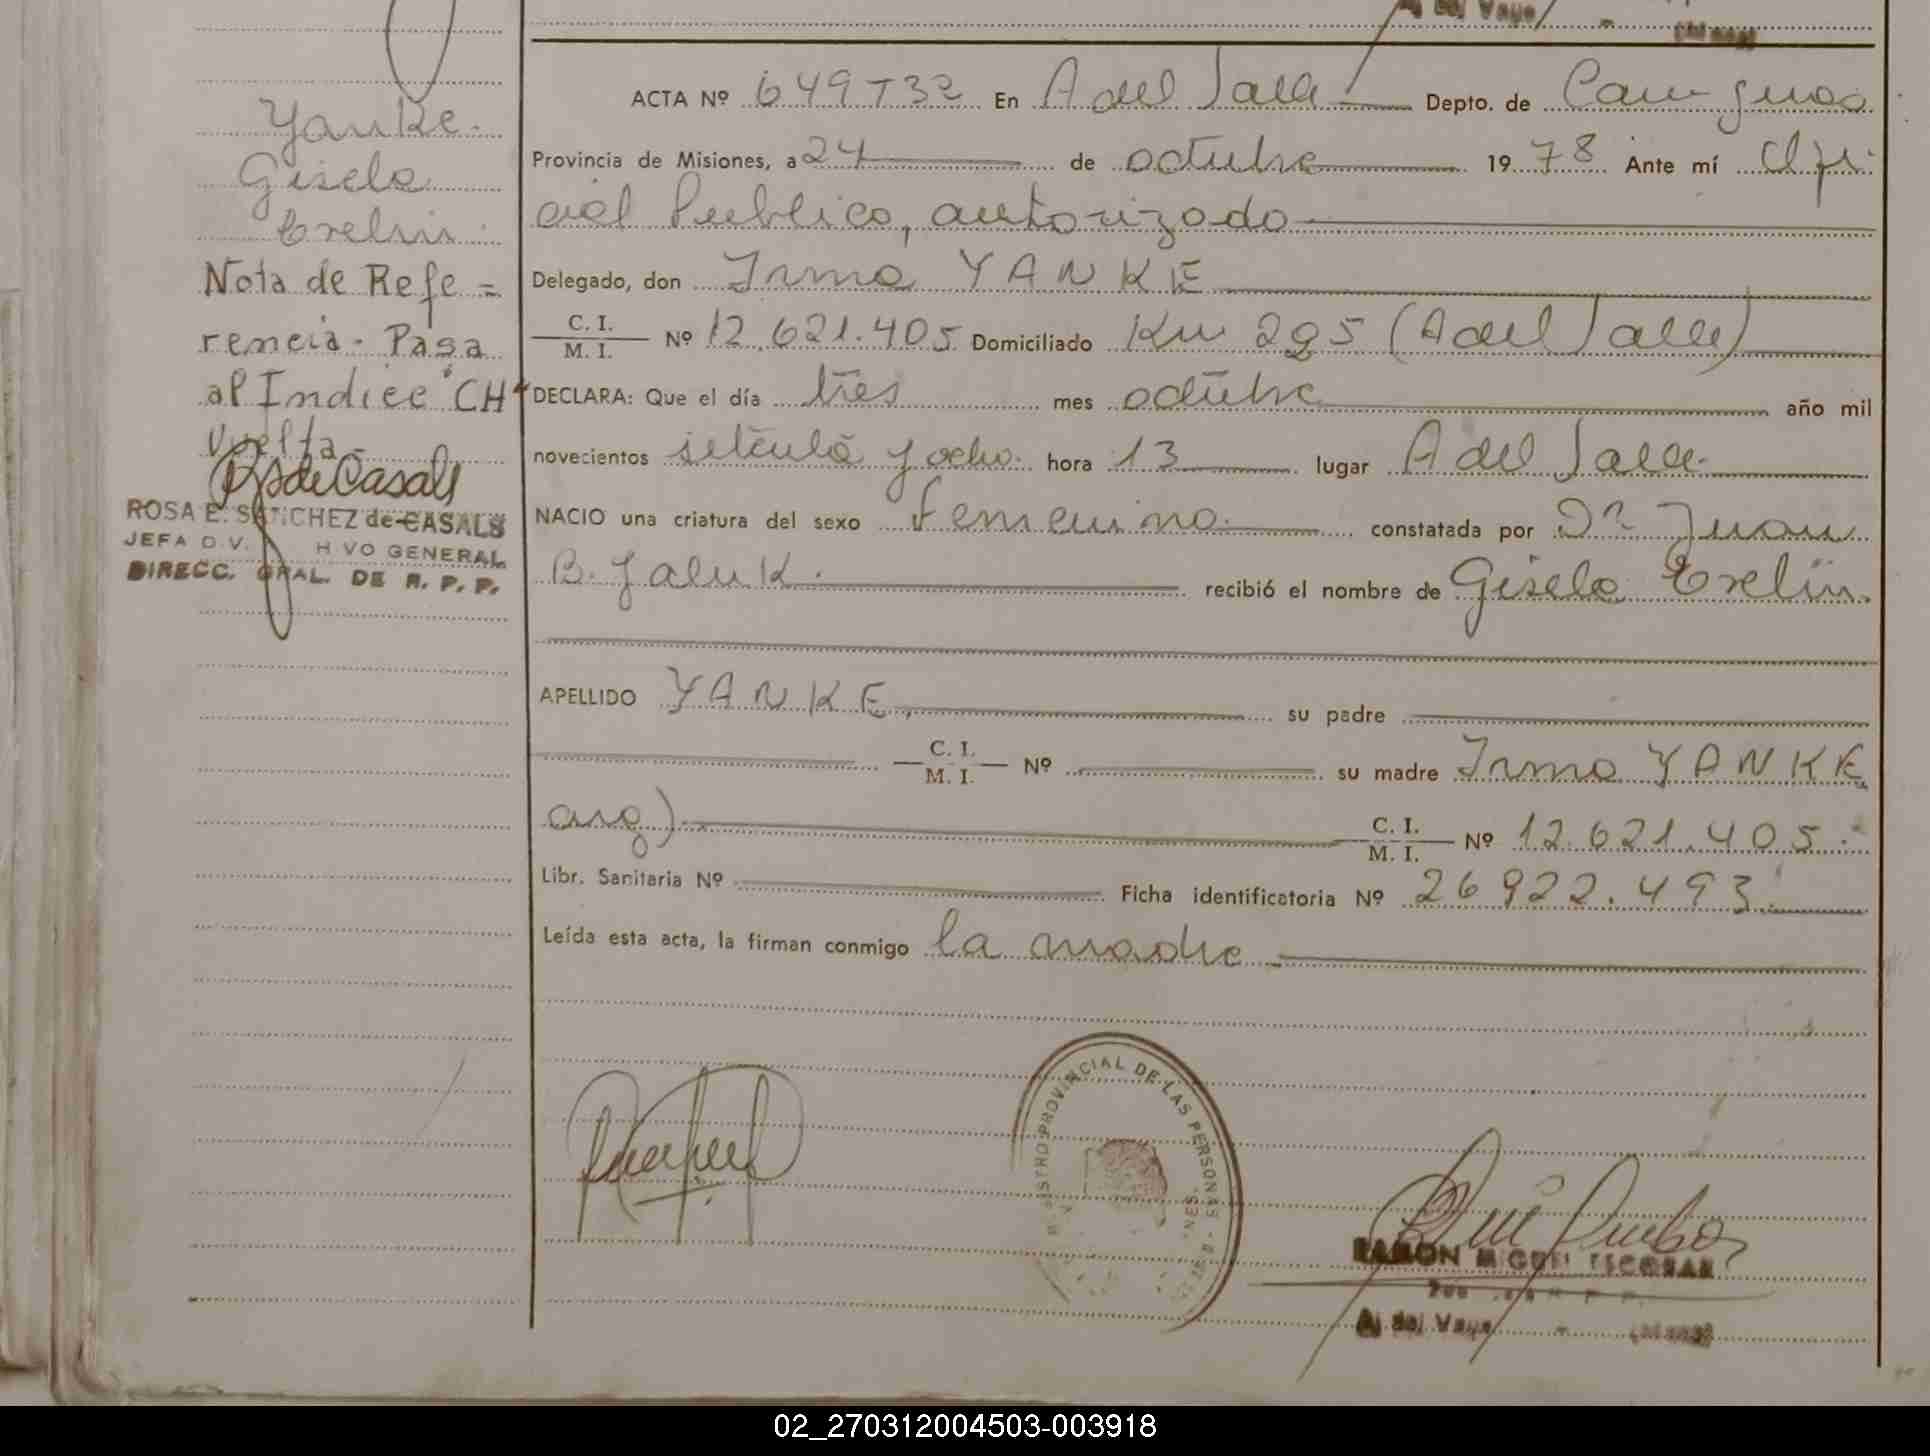 Aj del Valle
(Mnes)
Yanke.
Gisela
Evelin
Nota de Refe=
rencia. Pasa
al Indice "CH"
Vuelta
RSdeCasals
ROSA E. SANCHEZ de CASALS
JEFA DIV. H VO GENERAL
DIRECC. GRAL. DE R. P. P.
ACTA Nº 649T32 En A del Valle Depto. de Cainguas
Provincia de Misiones, a 24 de octubre 1978 Ante mí Ofi
cial Publico, autorizado
Delegado, don Irma YANKE
C. I.
M. I. Nº 12.621.405 Domiciliado Km 295 (A del Valle)
DECLARA: Que el día tres mes octubre año mil
novecientos setenta y ocho. hora 13 lugar A del Valle.
NACIO una criatura del sexo femenino. constatada por Dr. Juan
B. Jaluk. recibió el nombre de Gisela Evelin.
APELLIDO YANKE, su padre
C. I.
M. I. Nº su madre Irma YANKE
arg) C. I.
M. I. Nº 12.621.405.
Libr. Sanitaria Nº Ficha identificatoria Nº 26922.493.
Leída esta acta, la firman conmigo la madre
REGISTRO PROVINCIAL DE LAS PERSONAS
RAMON MIGUEL ESCOBAR
Aj del Valle (Mnes)
02_270312004503-003918